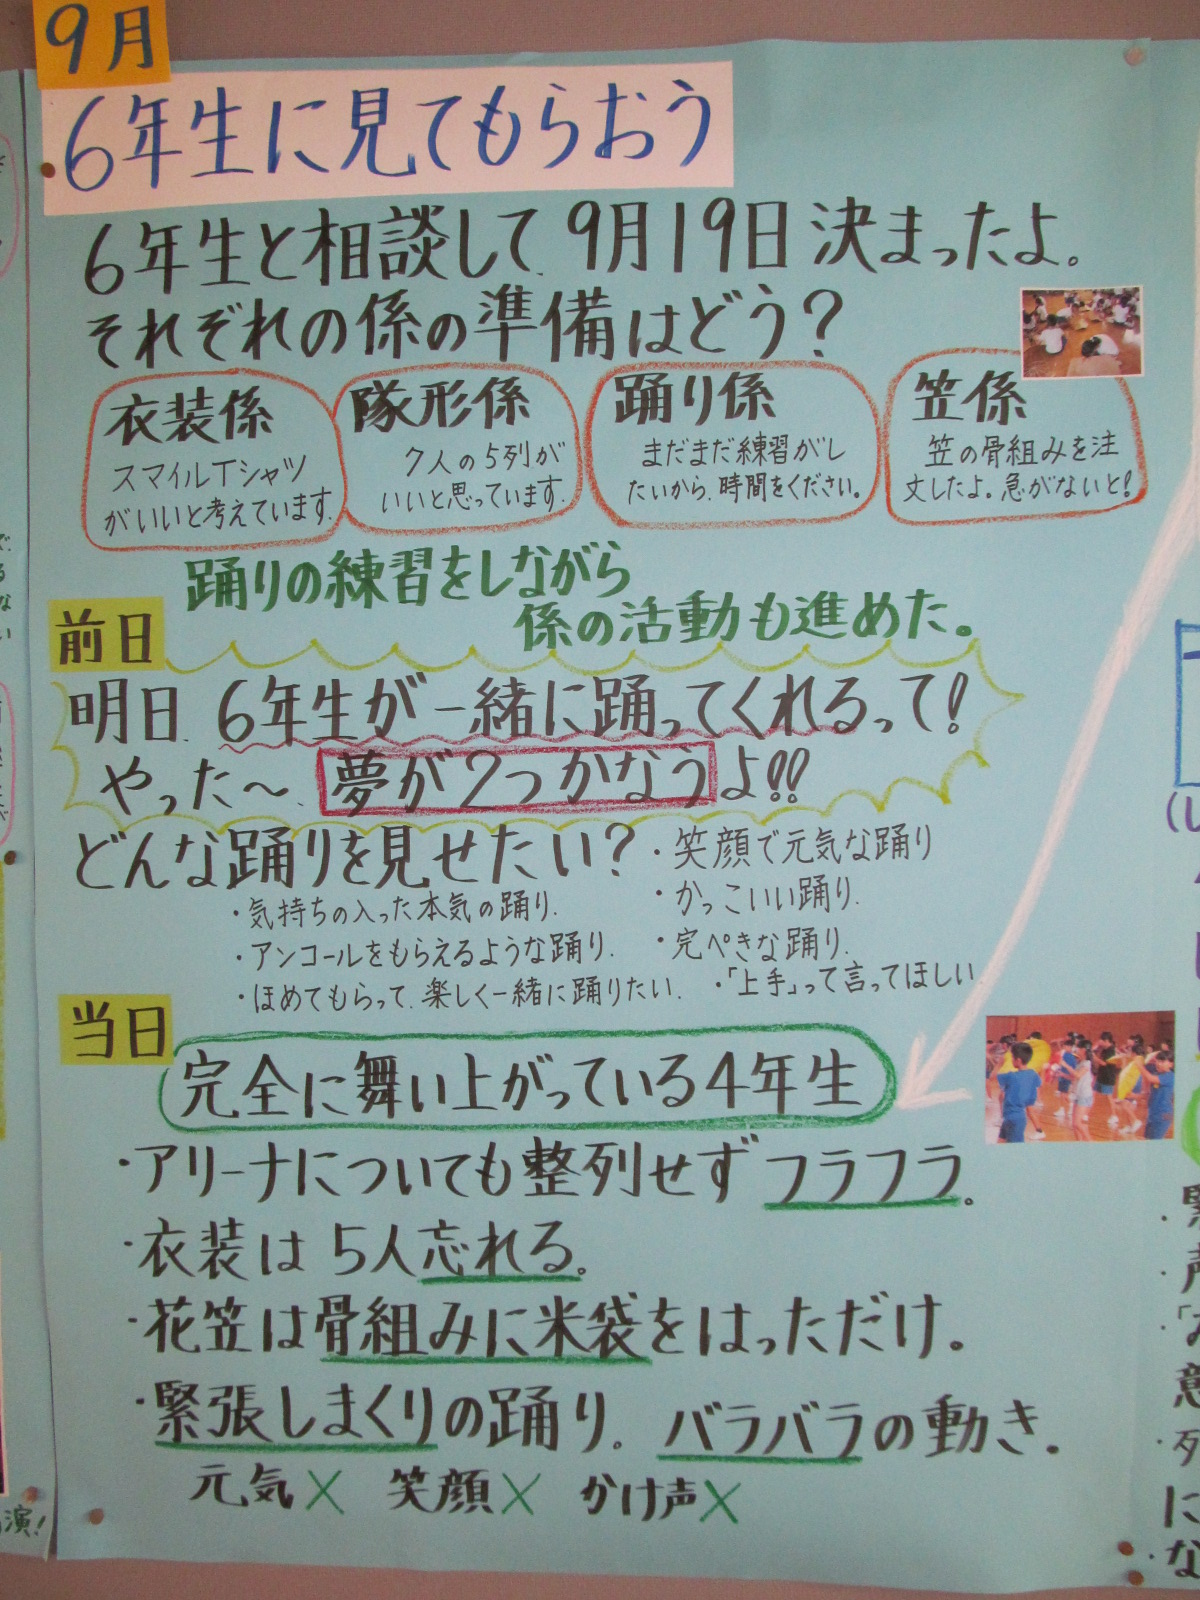 9月
6年生に見てもらおう
6年生と相談して、9月19日決まったよ。
それぞれの係の準備はどう？
衣装係
スマイルTシャツ
がいいと考えています。
隊形係
7人の5列が
いいと思っています。
踊り係
まだまだ練習がし
たいから、時間をください。
笠係
笠の骨組みを注
文したよ。急がないと!
踊りの練習をしながら
係の活動も進めた。
前日
明日、6年生が一緒に踊ってくれるって!
やった〜、夢が2つかなうよ!!
どんな踊りを見せたい?
・笑顔で元気な踊り
・気持ちの入った本気の踊り。
・かっこいい踊り。
・アンコールをもらえるような踊り。
・完ぺきな踊り。
・ほめてもらって、楽しく一緒に踊りたい。
・「上手」って言ってほしい
当日
完全に舞い上がっている4年生
・アリーナについても整列せずフラフラ。
・衣装は5人忘れる。
・花笠は骨組みに米袋をはっただけ。
・緊張しまくりの踊り。バラバラの動き。
元気× 笑顔× かけ声×
演!